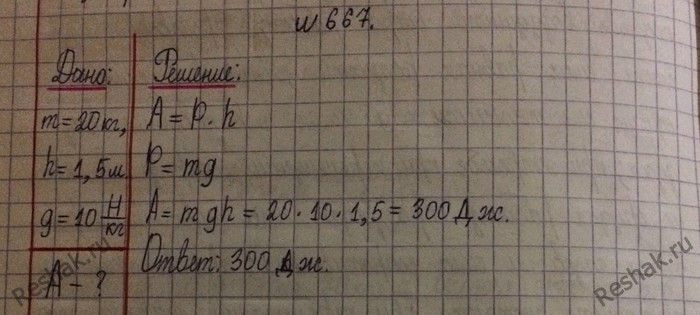 № 667.
Дано: Решение:
m = 20 кг, A = P · h
h = 1,5 м P = mg
g = 10 Н/кг A = mgh = 20 · 10 · 1,5 = 300 Дж.
A - ? Ответ: 300 Дж.
Reshak.ru
Reshak.ru